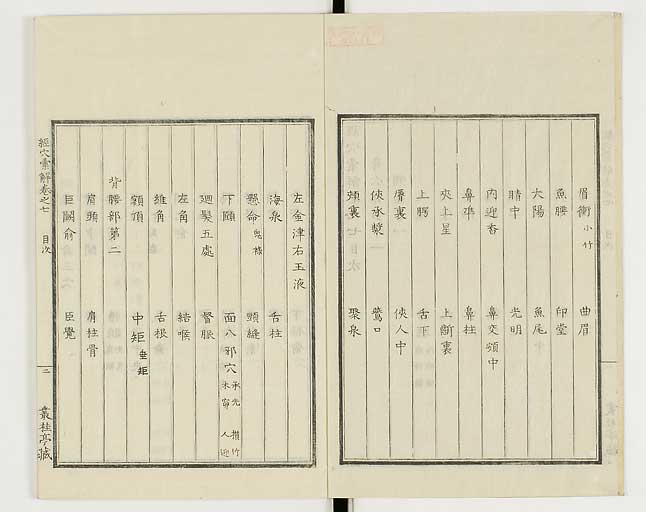 眉衝 小竹 曲眉
魚腰 印堂
太陽 魚尾
睛中 光明
內迎香 鼻交頞中
鼻準 鼻柱
夾上星 上齗裏
上腭 舌下
脣裏 俠人中
俠承漿 鷰口
頰裏 聚泉
左金津右玉液
海泉 舌柱
懸命 鬼祿 頸縫
下頤 面八邪穴 承光 攢竹 禾窌 人迎
𢌞髮五處 督脈
左角 結喉
維角 舌根
額顱 中矩 垂矩
背腰部第二
肩頭 肩柱骨
巨闕俞 臣覺
經穴彙解卷之七 目次 二 叢桂亭藏